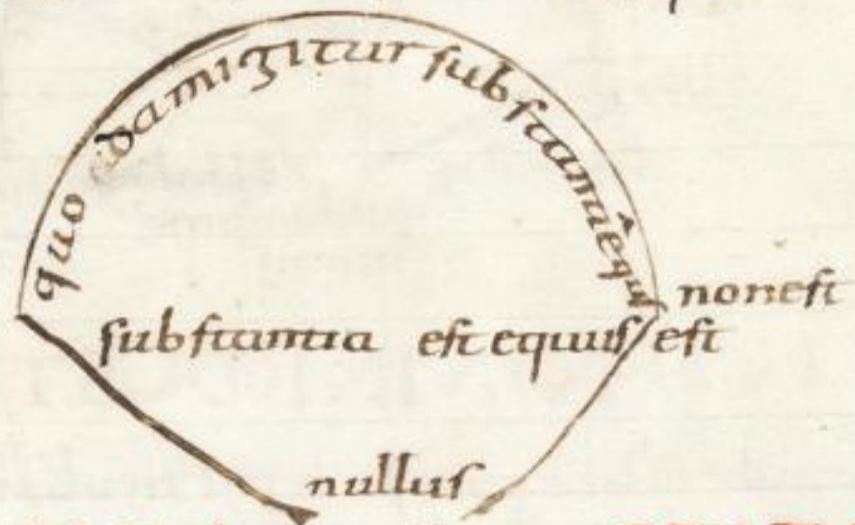 quo edam igitur substantia equus
non est
substantia est equus est
nullus